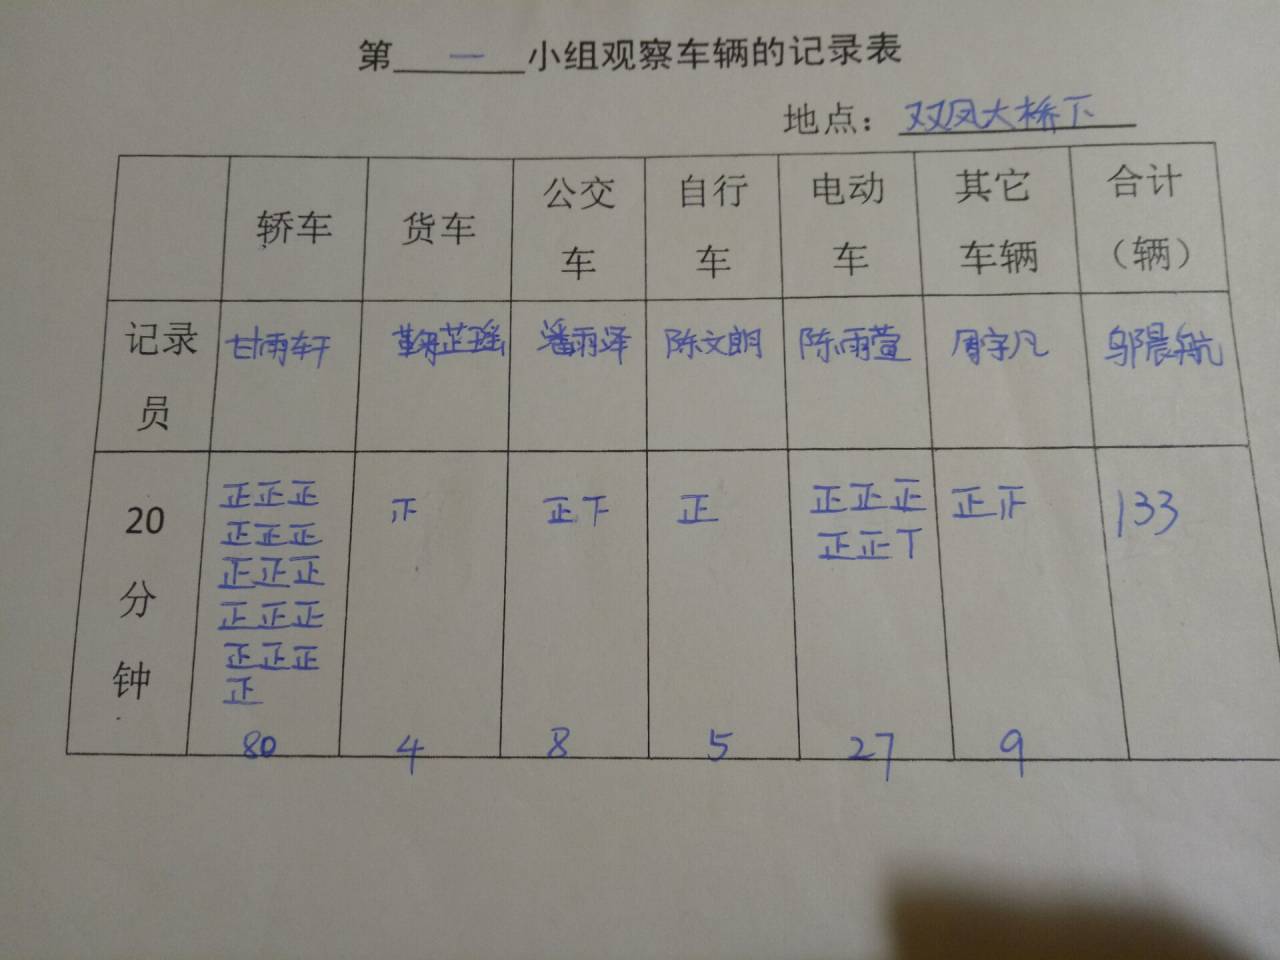 第 一 小组观察车辆的记录表
地点：双凤大桥下
轿车 货车 公交车 自行车 电动车 其它车辆 合计（辆）
记录员 甘雨轩 鞠芷瑶 潘雨泽 陈文朗 陈雨萱 周宇凡 邬晨航
20分钟 正正正 正 正下 正 正正正 正正 133
正正正 正正丅
正正正
正正正
正正正
正
80 4 8 5 27 9